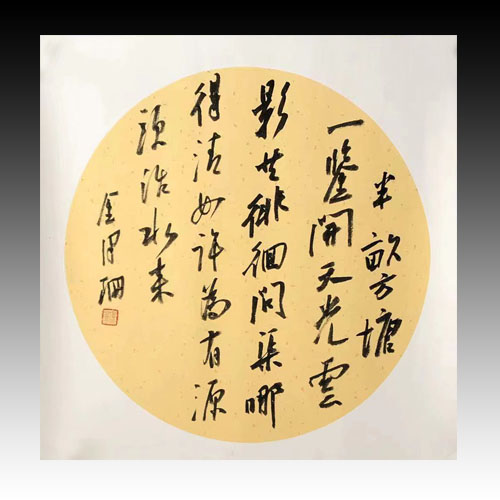 半畝方塘
一鑒開天光雲
影共徘徊問渠哪
得清如許為有源
頭活水来